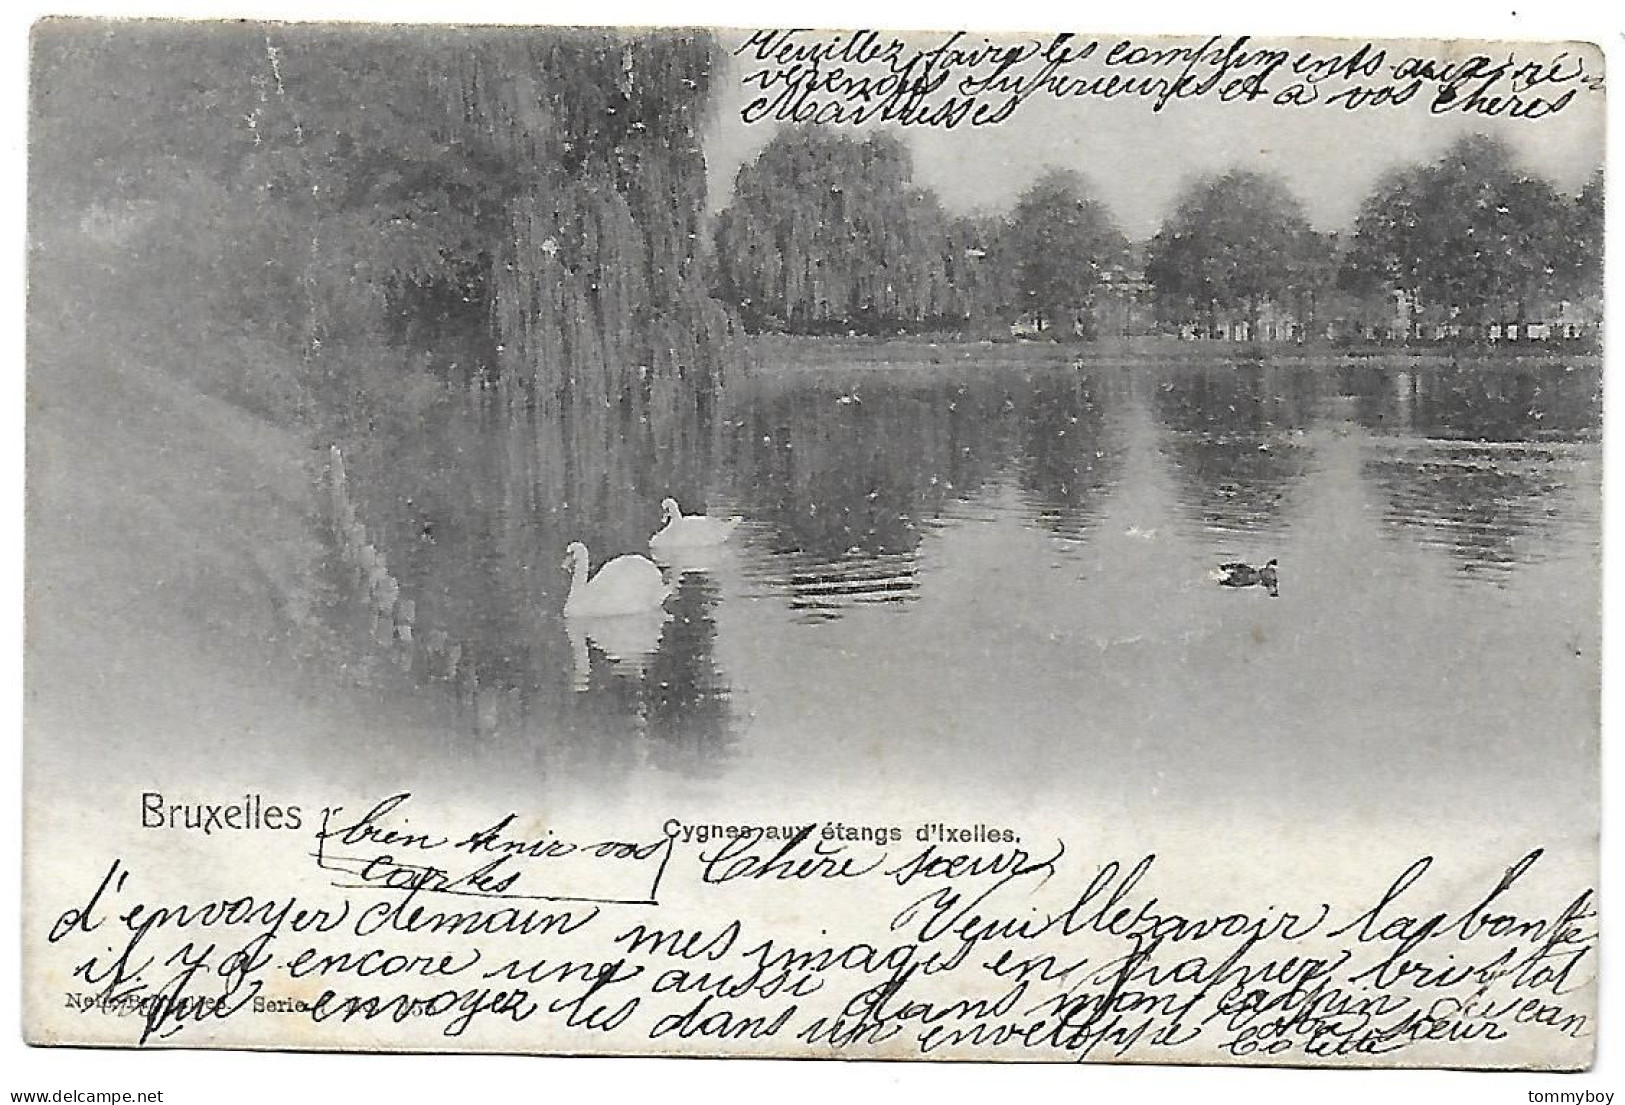 Veuillez faire les compliments aux ré
vérendes Supérieures et à vos chères
Maîtresses
Bruxelles
Cygnes aux étangs d'Ixelles.
bien tenir vos
cartes
Chère sœur
Veuillez avoir la bonté
d'envoyer demain mes images en papier bristol
il y a encore une aussi dans mon
envoyez les dans un enveloppe
Serie
sœur
Colette
delcampe.net
tommyboy